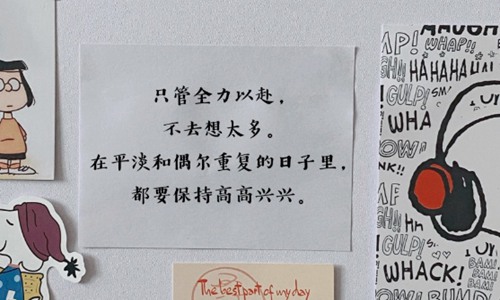 只管全力以赴，
不去想太多。
在平淡和偶尔重复的日子里，
都要保持高高兴兴。
The best part of my day
AAUGH
MP!
WHAP!!
HAHAHAHA
GULP!
WHA
WHACK!
GULP!
BAM!
BAM!